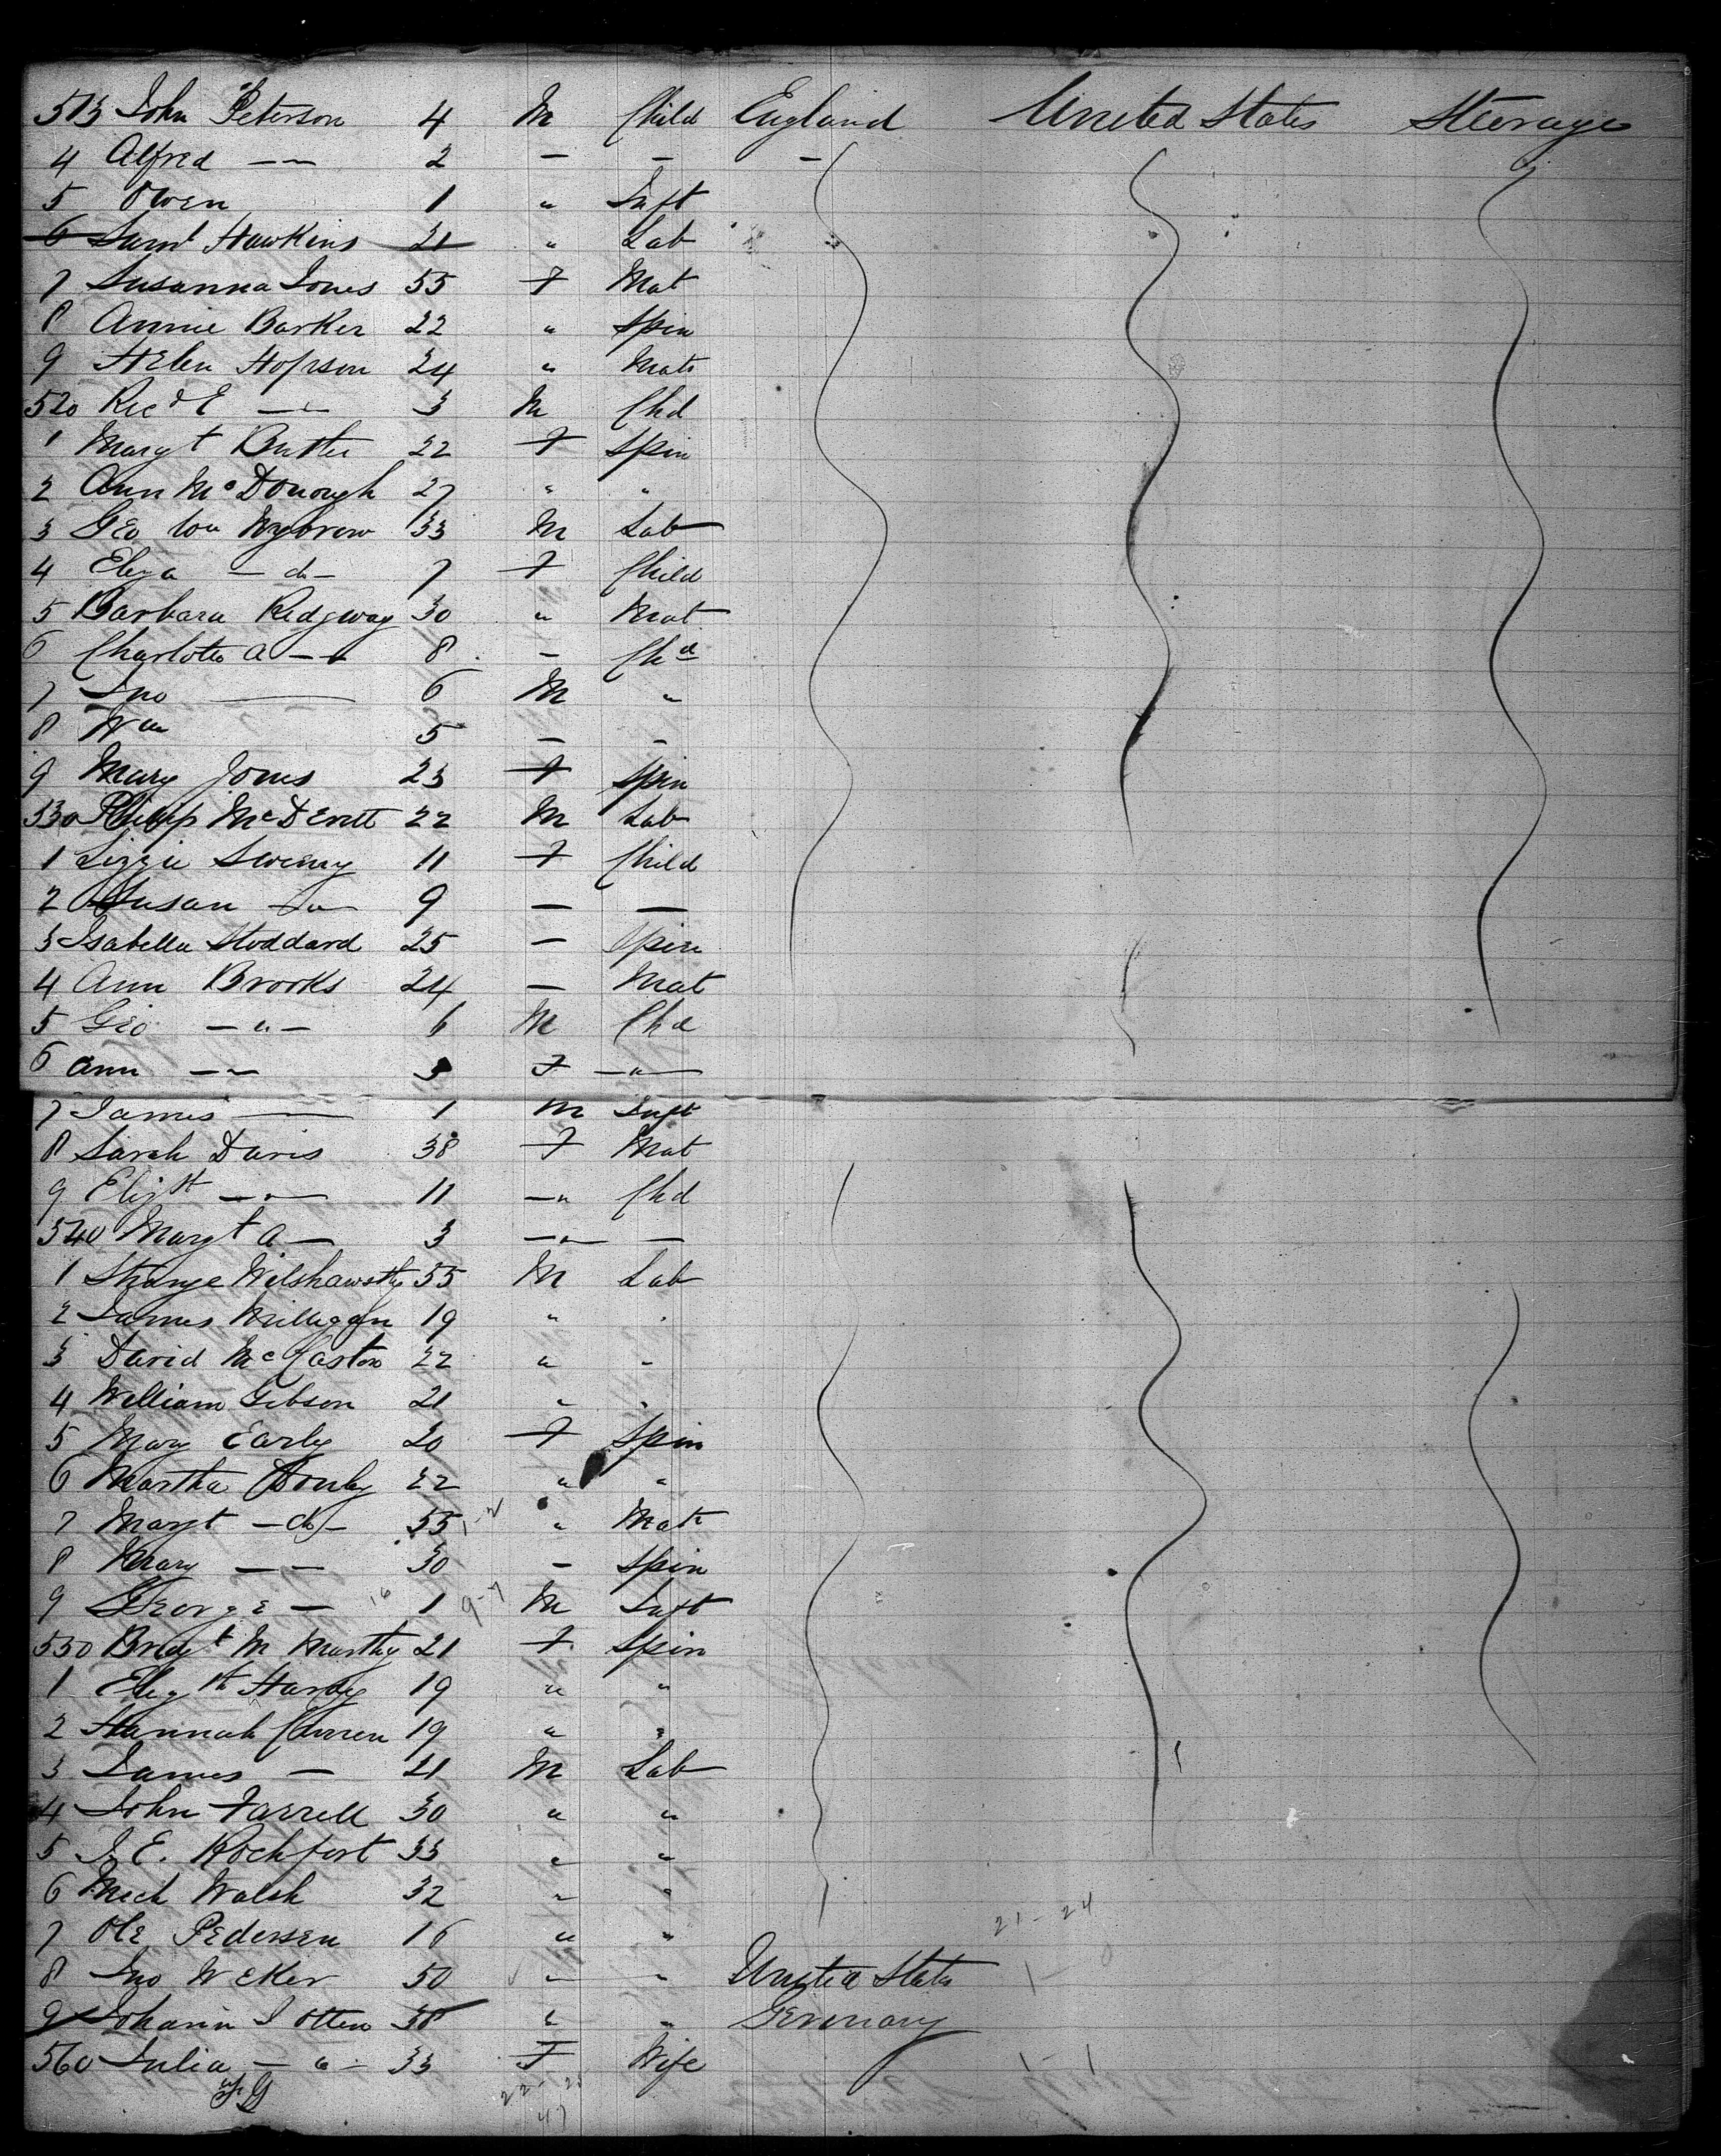 513 John Peterson 4 M Child England United States Steerage
4 Alfred — " — 2 — — —
5 Owen 1 " Inft
6 Saml Hawkins 21 " Lab
7 Susanna Jones 55 F Mat
8 Annie Barker 22 " Spin
9 Helen Hopson 24 " Mat
520 Ricd E — " — 3 M Chd
1 Margt Butler 22 F Spin
2 Ann McDonough 27 " "
3 Geo Wm Wybrow 33 M Lab
4 Eliza — do — 7 F Child
5 Barbara Ridgway 30 " Mat
6 Charlotte A — 8 — Chd
7 Jno — 6 M "
8 Wm 5 — —
9 Mary Jones 23 F Spin
530 Philip McDevitt 22 M Lab
1 Lizzie Sweeny 11 F Child
2 Susan — " — 9 — —
3 Isabella Stoddard 25 — Spin
4 Ann Brooks 24 — Mat
5 Geo — " — 6 M Chd
6 Ann — — 3 F — " —
7 James — 1 M Inft
8 Sarah Davis 38 F Mat
9 Elizth — " — 11 — " Chd
540 Margt A — 3 — " — —
1 55 M Lab
2 James Milligan 19 " "
3 David 22 " "
4 William Gibson 21 " "
5 Mary Early 20 F Spin
6 Martha 22 " "
7 Margt — do — 55 " Mat
8 Mary — — 30 — Spin
9 George — 1 M Inft
550 21 F Spin
1 Elizth Hardy 19 " "
2 Hannah Curren 19 " "
3 James — 21 M Lab
4 John Farrell 30 " "
5 J. E. Rochfort 33 " "
6 Mich Walsh 32 " "
7 Ole Pedersen 16 " "
21 - 24
8 Jno Weker 50 " " United States
9 Johann J Otten 38 " " Germany
560 Julia — " — 33 F Wife
1 - 1
47